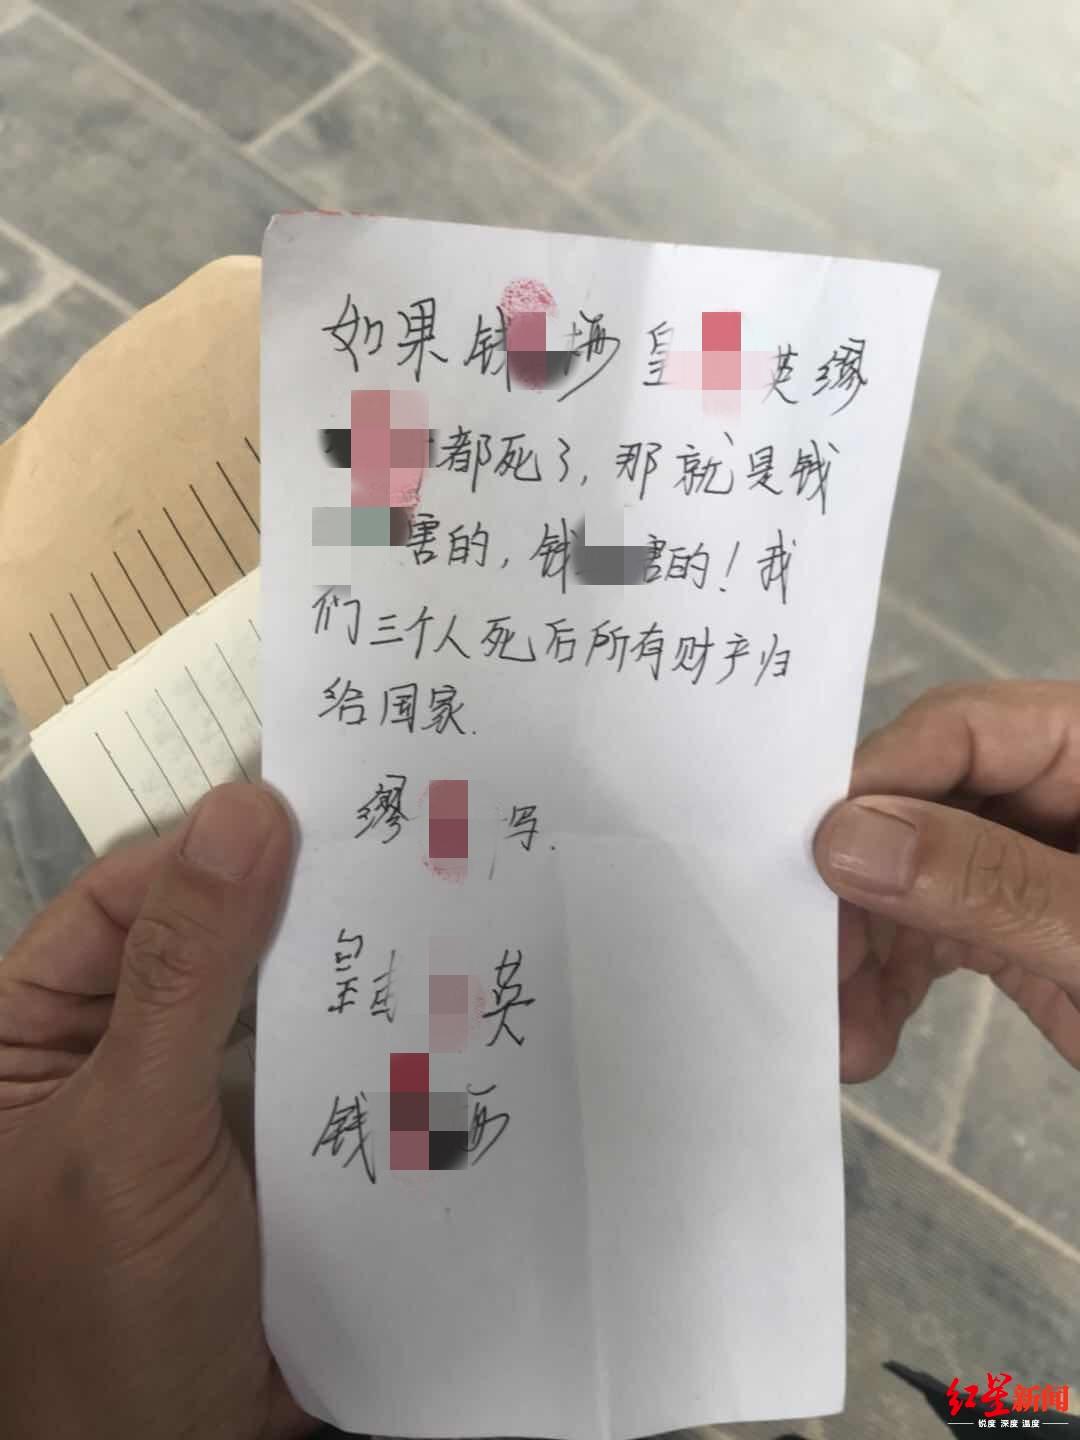 如果钱 海 皇 英缪
都死了，那就是钱
害的，钱 害的！我
们三个人死后所有财产归
给国家.
缪 写.
皇甫 英
钱 海
红星新闻
锐度 深度 温度